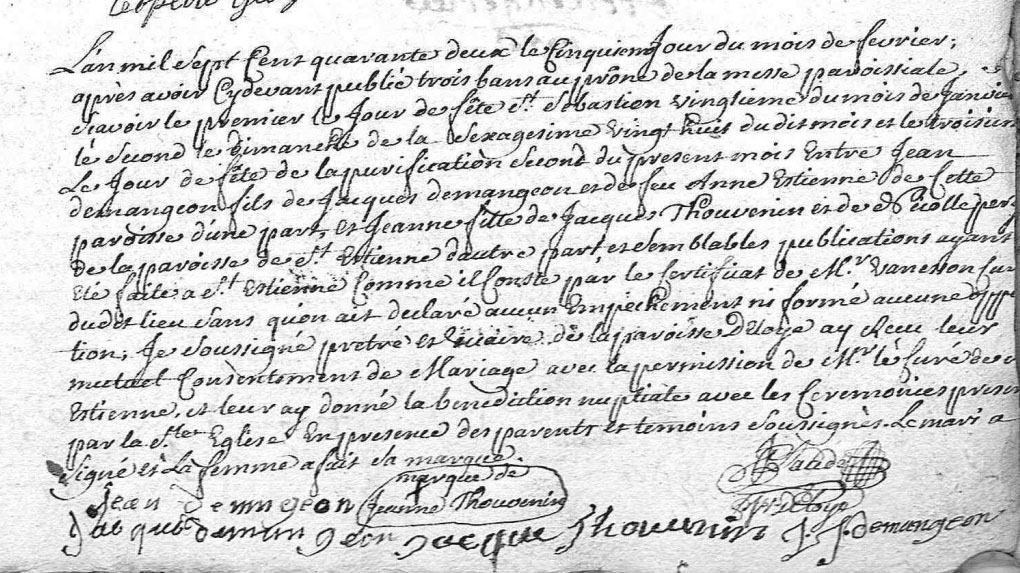 L'an mil sept cent quarante deux le cinquiem Jour du mois de fevrier;
après avoir cydevant publié trois bans au prône de la messe paroissiale,
sçavoir le premier le Jour de fête St. Sebastien vingtieme du mois de Janvier
le second le Dimanche de la Sexagesime vingt huit du dit mois et le troisiem
Le Jour de fête de la purification second du present mois Entre Jean
demangeon fils de Jacques demangeon et de feu Anne Estienne de Cette
paroisse d'une part, Et Jeanne fille de Jacques Thouvenin et de
de la paroisse de St. Estienne d'autre part, et semblables publications ayant
Eté faite a St. Estienne Comme il conste par le Certificat de Mr. Vanesson Curé
dudit lieu sans qu'on ait declaré aucun Empechement ni formé aucune oppo
tion, Je soussigné prêtre et vicaire de la paroisse d'Eloye ay reçu leur
mutuel Consentement de Mariage avec la permission de Mr. le Curé de
Estienne, et leur ay donné la benediction nuptiale avec les Ceremonies prescri
par la Ste. Eglise En presence des parents et temoins soussignés. Le mari a
signé et La femme a fait sa marque.
marque de
Jean Demngeon Jeanne Thouvenin
Jacque Thouvenin J. J. demangeon